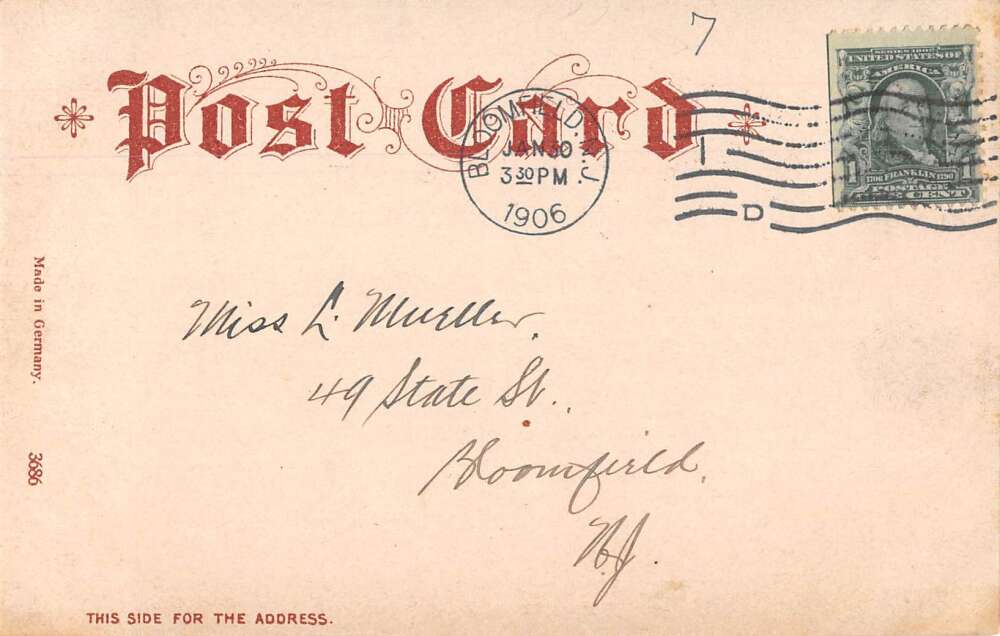 7
Post Card
BLOOMFIELD. N.J.
JAN 30
3 30 PM
1906
D
SERIES 1902
UNITED STATES OF
AMERICA
1706 FRANKLIN 1790
POSTAGE
ONE CENT
Miss L. Mueller.
49 State St.
Bloomfield.
N.J.
Made in Germany.
3686
THIS SIDE FOR THE ADDRESS.